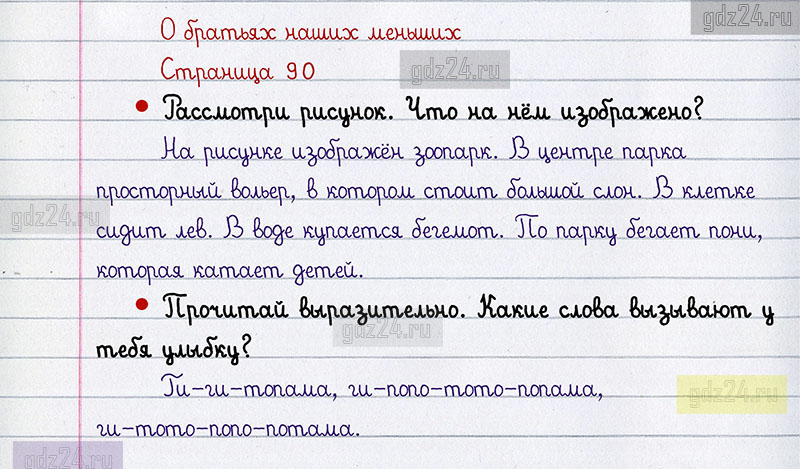 gdz24.ru
О братьях наших меньших
Страница 90
gdz24.ru
• Рассмотри рисунок. Что на нём изображено?
На рисунке изображён зоопарк. В центре парка
просторный вольер, в котором стоит большой слон. В клетке
gdz24.ru
сидит лев. В воде купается бегемот. По парку бегает пони,
которая катает детей.
• Прочитай выразительно. Какие слова вызывают у
gdz24.ru
тебя улыбку?
Ги-ги-топама, ги-попо-тото-попама,
gdz24.ru
ги-тото-попо-потама.
gdz24.ru